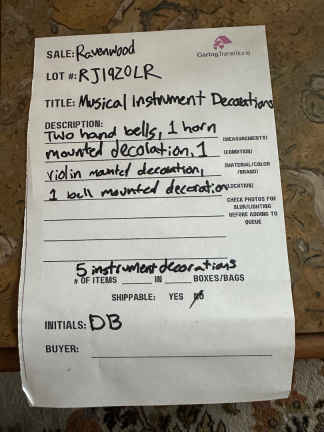 SALE: Ravenwood
CaringTransitions
LOT #: RJ1920LR
TITLE: Musical Instrument Decorations
DESCRIPTION:
Two hand bells, 1 horn
(MEASUREMENTS)
mounted decolation, 1
(CONDITION)
violin mounted decoration,
(MATERIAL/COLOR
/BRAND)
1 bell mounted decoration
(LOCATION)
CHECK PHOTOS FOR
BLUR/LIGHTING
BEFORE ADDING TO
QUEUE
5 instrument decorations
# OF ITEMS ______ IN ______ BOXES/BAGS
SHIPPABLE: YES NO
INITIALS: DB
BUYER: